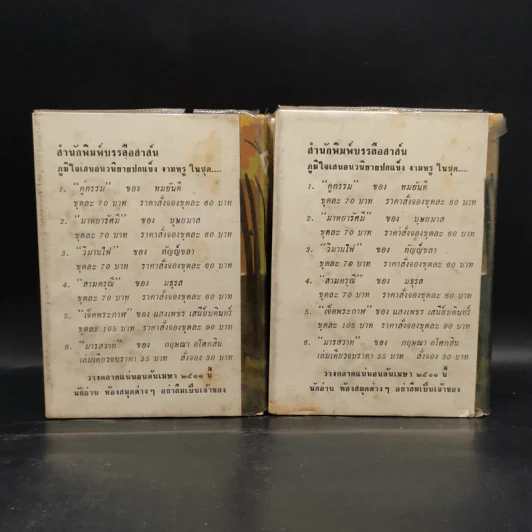 สำนักพิมพ์บรรลือสาส์น
ภูมิใจเสนอนวนิยายปกแข็ง งามหรู ในชุด....
1. "คู่กรรม" ของ ทมยันตี
ชุดละ 70 บาท ราคาสั่งจองชุดละ 60 บาท
2. "มาทยารัศมี" ของ บุษยมาส
ชุดละ 70 บาท ราคาสั่งจองชุดละ 60 บาท
3. "วิมานไฟ" ของ กัญญ์ชลา
ชุดละ 70 บาท ราคาสั่งจองชุดละ 60 บาท
4. "สามดรุณี" ของ มธุรส
ชุดละ 70 บาท ราคาสั่งจองชุดละ 60 บาท
5. "เจ็ดพระกาฬ" ของ แสงเพชร เสนีย์บดินทร์
ชุดละ 105 บาท ราคาสั่งจองชุดละ 90 บาท
6. "มารสวาท" ของ กฤษณา อโศกสิน
เล่มเดียวจบราคา 35 บาท สั่งจอง 30 บาท
วางตลาดแน่นอนต้นเมษา ๒๕๑๑ นี้
นักอ่าน ห้องสมุดต่างๆ อย่าลืมเป็นเจ้าของ
สำนักพิมพ์บรรลือสาส์น
ภูมิใจเสนอนวนิยายปกแข็ง งามหรู ในชุด....
1. "คู่กรรม" ของ ทมยันตี
ชุดละ 70 บาท ราคาสั่งจองชุดละ 60 บาท
2. "มาทยารัศมี" ของ บุษยมาส
ชุดละ 70 บาท ราคาสั่งจองชุดละ 60 บาท
3. "วิมานไฟ" ของ กัญญ์ชลา
ชุดละ 70 บาท ราคาสั่งจองชุดละ 60 บาท
4. "สามดรุณี" ของ มธุรส
ชุดละ 70 บาท ราคาสั่งจองชุดละ 60 บาท
5. "เจ็ดพระกาฬ" ของ แสงเพชร เสนีย์บดินทร์
ชุดละ 105 บาท ราคาสั่งจองชุดละ 90 บาท
6. "มารสวาท" ของ กฤษณา อโศกสิน
เล่มเดียวจบราคา 35 บาท สั่งจอง 30 บาท
วางตลาดแน่นอนต้นเมษา ๒๕๑๑ นี้
นักอ่าน ห้องสมุดต่างๆ อย่าลืมเป็นเจ้าของ